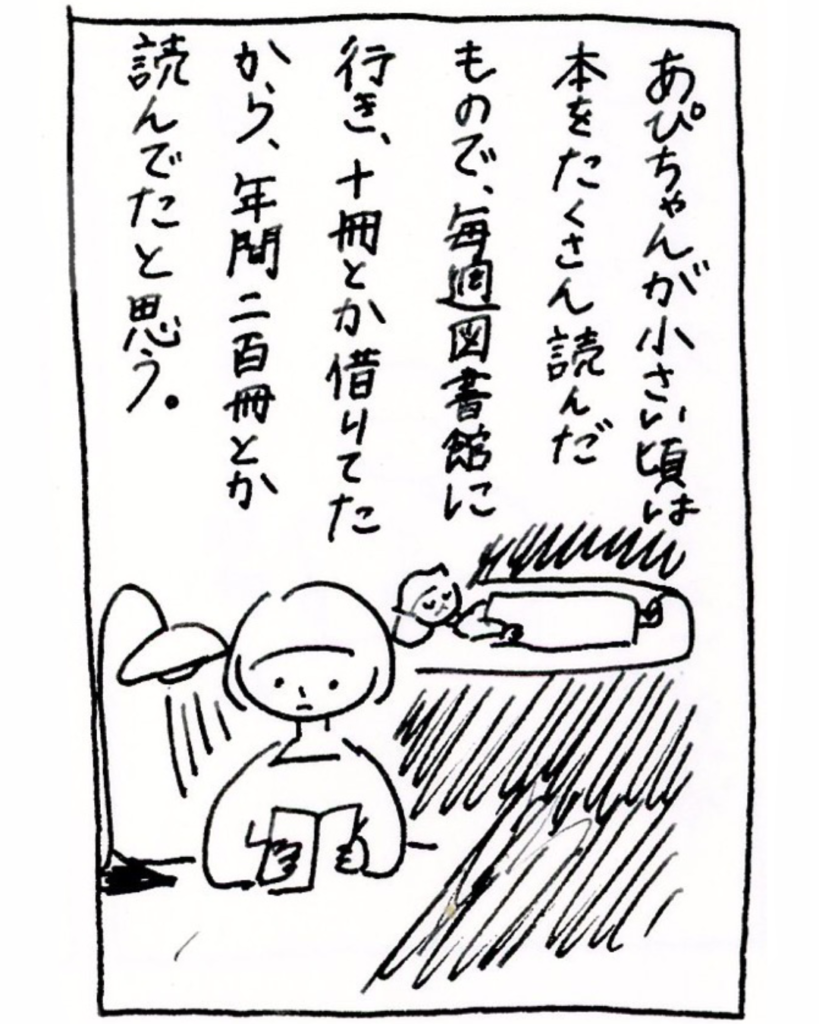 あぴちゃんが小さい頃は
本をたくさん読んだ
もので、毎週図書館に
行き、十冊とか借りてた
から、年間二百冊とか
読んでたと思う。